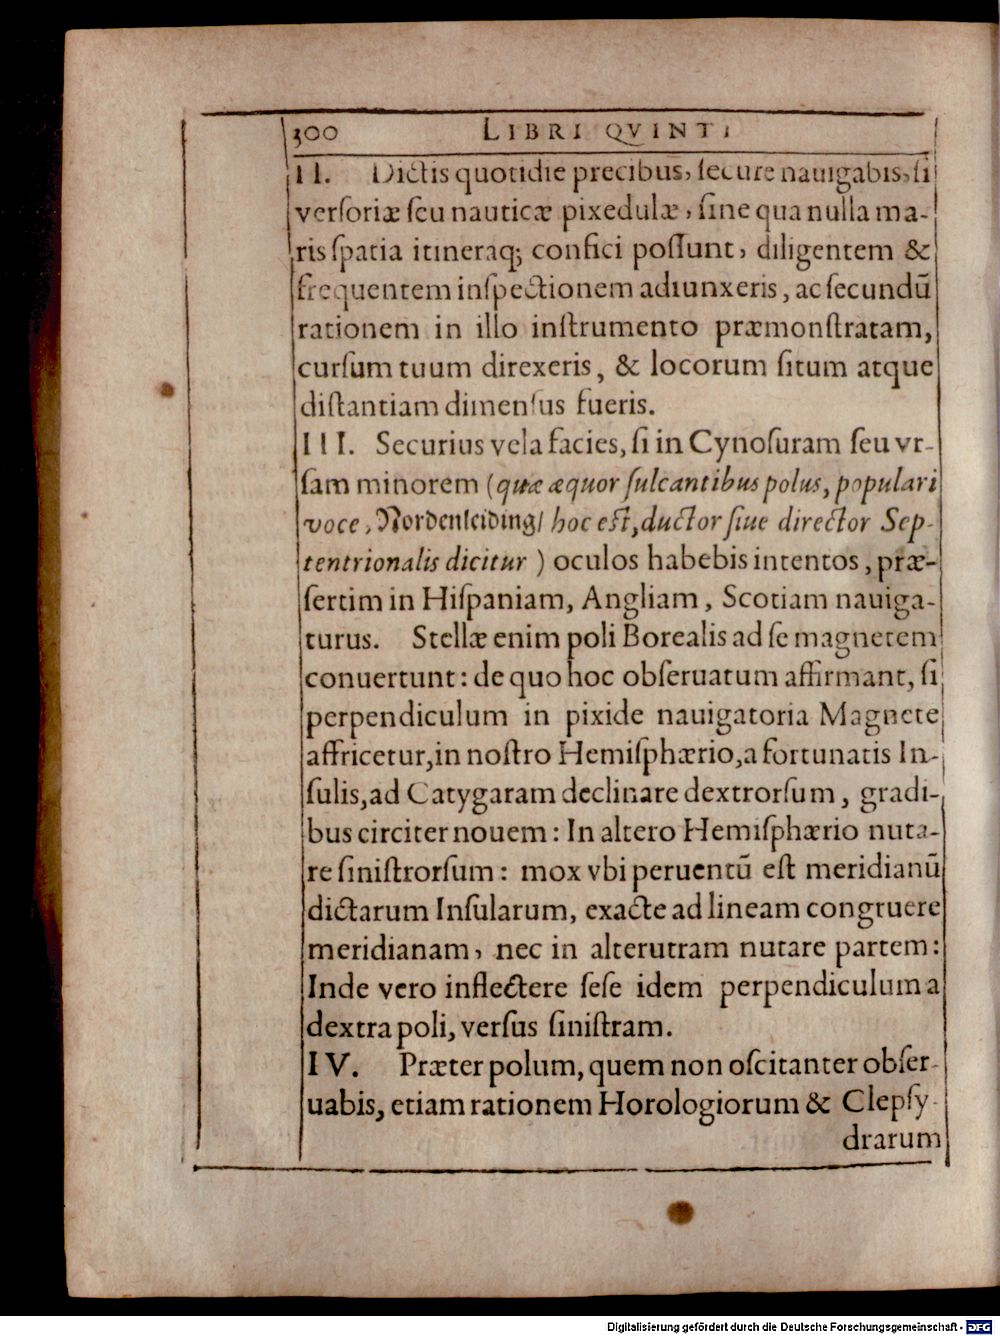 300 LIBRI QVINTI
II. Dictis quotidie precibus, ſecure nauigabis, ſi
verſoriæ ſeu nauticæ pixedulæ, ſine qua nulla ma-
ris ſpatia itineraq; confici poſſunt, diligentem &
frequentem inſpectionem adiunxeris, ac ſecundū
rationem in illo inſtrumento præmonſtratam,
curſum tuum direxeris, & locorum ſitum atque
diſtantiam dimenſus fueris.
III. Securius vela facies, ſi in Cynoſuram ſeu vr-
ſam minorem (quæ æquor ſulcantibus polus, populari
voce, Nordenleiding/ hoc eſt, ductor ſiue director Sep-
tentrionalis dicitur) oculos habebis intentos, præ-
ſertim in Hiſpaniam, Angliam, Scotiam nauiga-
turus. Stellæ enim poli Borealis ad ſe magnetem
conuertunt: de quo hoc obſeruatum affirmant, ſi
perpendiculum in pixide nauigatoria Magnete
affricetur, in noſtro Hemiſphærio, a fortunatis In-
ſulis, ad Catygaram declinare dextrorſum, gradi-
bus circiter nouem: In altero Hemiſphærio nuta-
re ſiniſtrorſum: mox vbi peruentū eſt meridianū
dictarum Inſularum, exacte ad lineam congruere
meridianam, nec in alterutram nutare partem:
Inde vero inflectere ſeſe idem perpendiculum a
dextra poli, verſus ſiniſtram.
IV. Præter polum, quem non oſcitanter obſer-
uabis, etiam rationem Horologiorum & Clepſy-
drarum
Digitalisierung gefördert durch die Deutsche Forschungsgemeinschaft - DFG